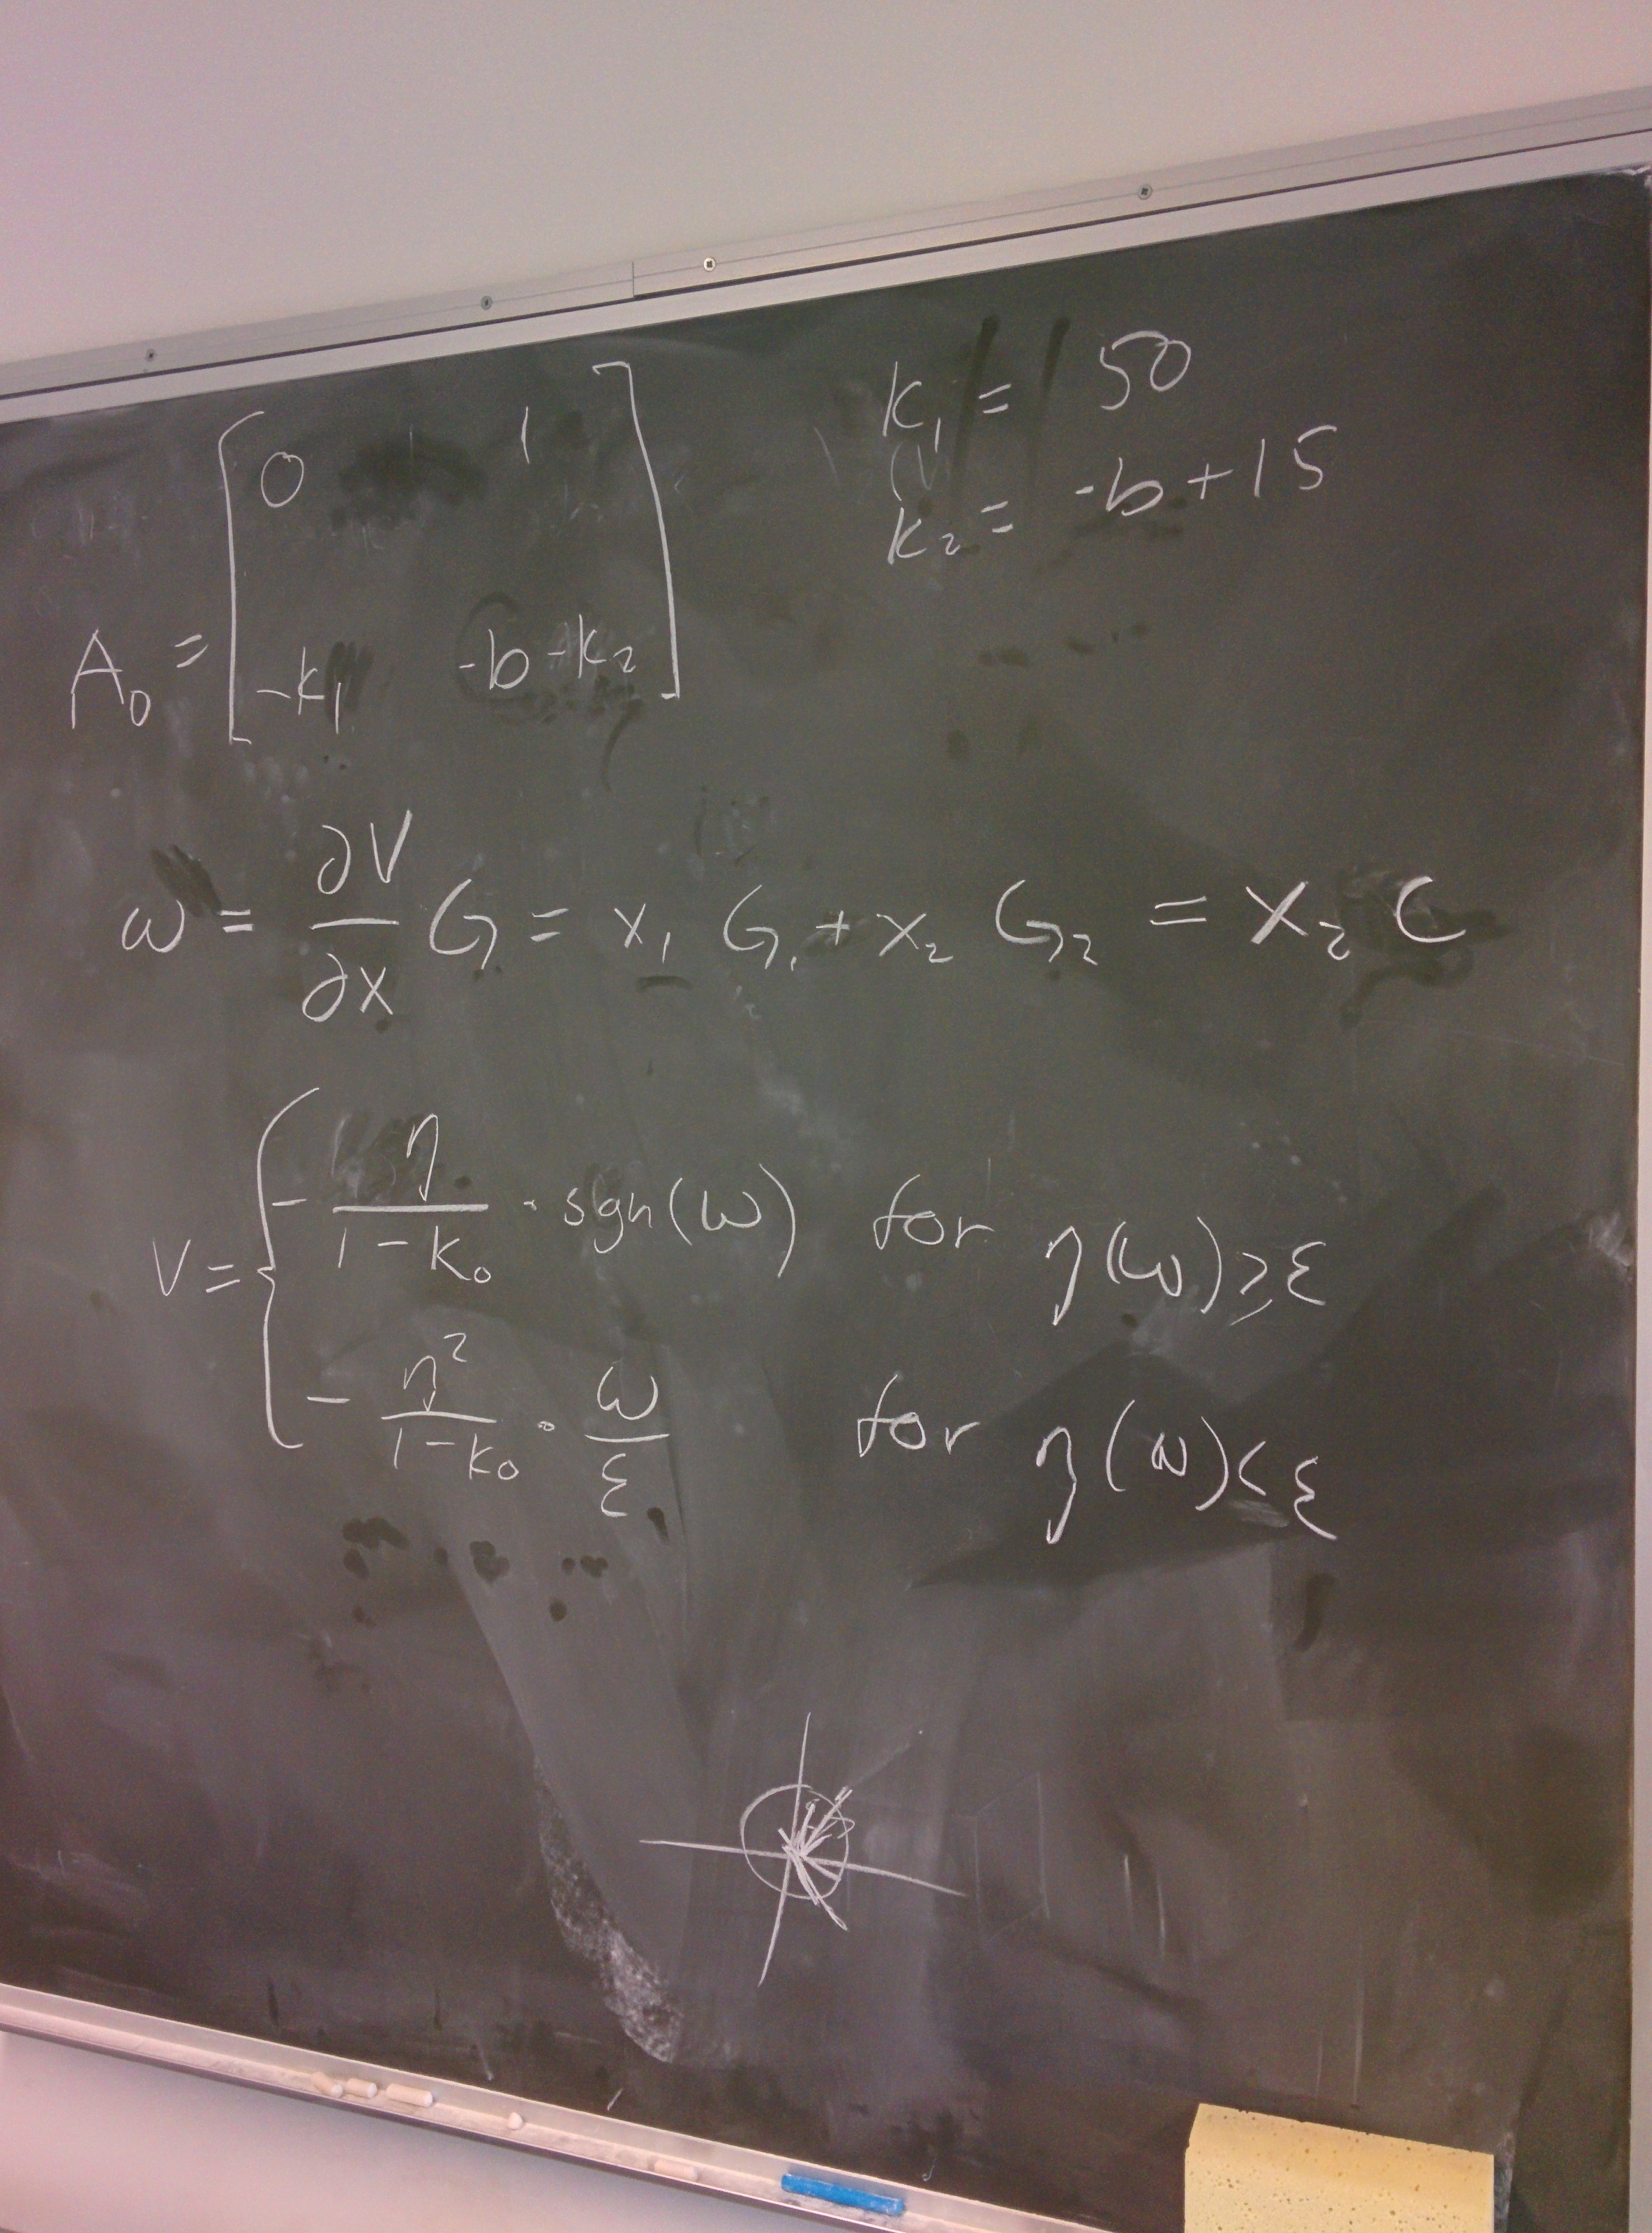 A₀ = [0 1
-k₁ -b-k₂]
k₁ = 50
k₂ = -b+15
ω = ∂V/∂x G = x₁ G₁ + x₂ G₂ = x₂ c
v = { - η/(1-k₀) · sgn(ω) for η(ω) ≥ ε
- η²/(1-k₀) · ω/ε for η(ω) < ε